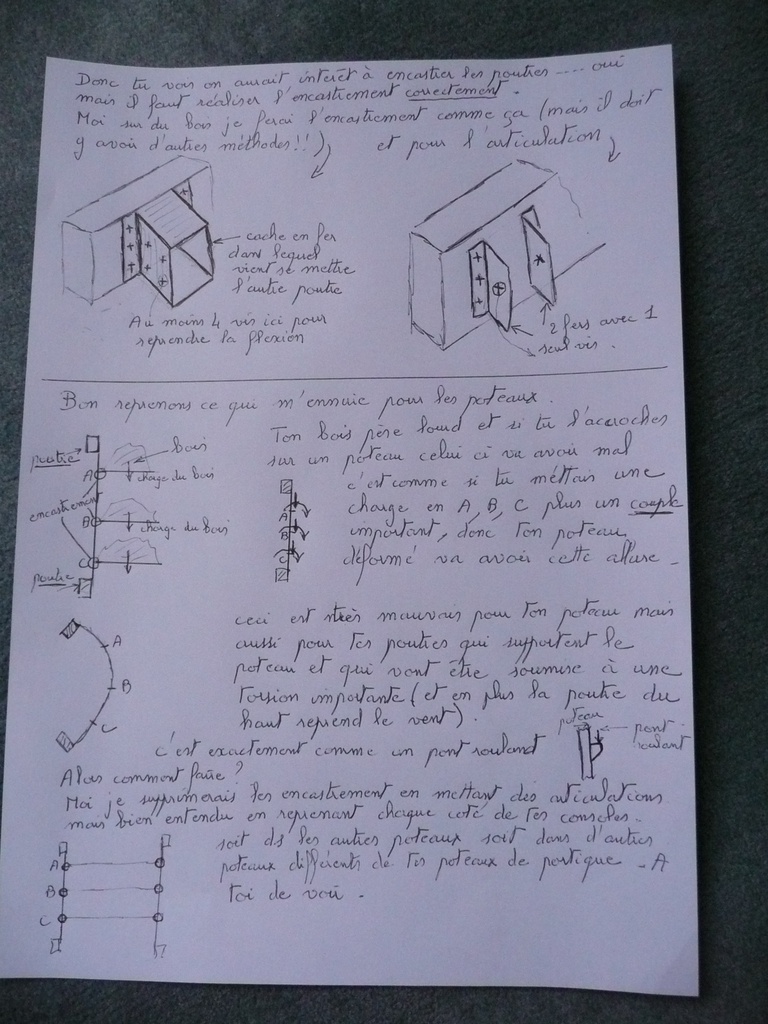 Donc tu vois on aurait intérêt à encastrer les poutres .... oui
mais il faut réaliser l'encastrement correctement.
Moi sur du bois je ferai l'encastrement comme ça (mais il doit
y avoir d'autres méthodes!!) et pour l'articulation
cache en fer
dans lequel
vient se mettre
l'autre poutre
Au moins 4 vis ici pour
reprendre la flexion
2 fers avec 1
seul vis.
Bon reprenons ce qui m'ennuie pour les poteaux.
poutre
bois
A
charge du bois
encastrement
B
charge du bois
C
poutre
Ton bois pèse lourd et si tu l'accroches
sur un poteau celui ci va avoir mal
c'est comme si tu mettais une
charge en A, B, C plus un couple
important, donc ton poteau
déformé va avoir cette allure.
A
B
C
A
B
C
ceci est très mauvais pour ton poteau mais
aussi pour tes poutres qui supportent le
poteau et qui vont être soumise à une
torsion importante (et en plus la poutre du
haut reprend le vent).
c'est exactement comme un pont roulant
poteau
pont
roulant
Alors comment faire ?
Moi je supprimerais les encastrement en mettant des articulations
mais bien entendu en reprenant chaque coté de tes consoles..
soit ds les autres poteaux soit dans d'autres
poteaux différents de tes poteaux de portique - A
toi de voir.
A
B
C